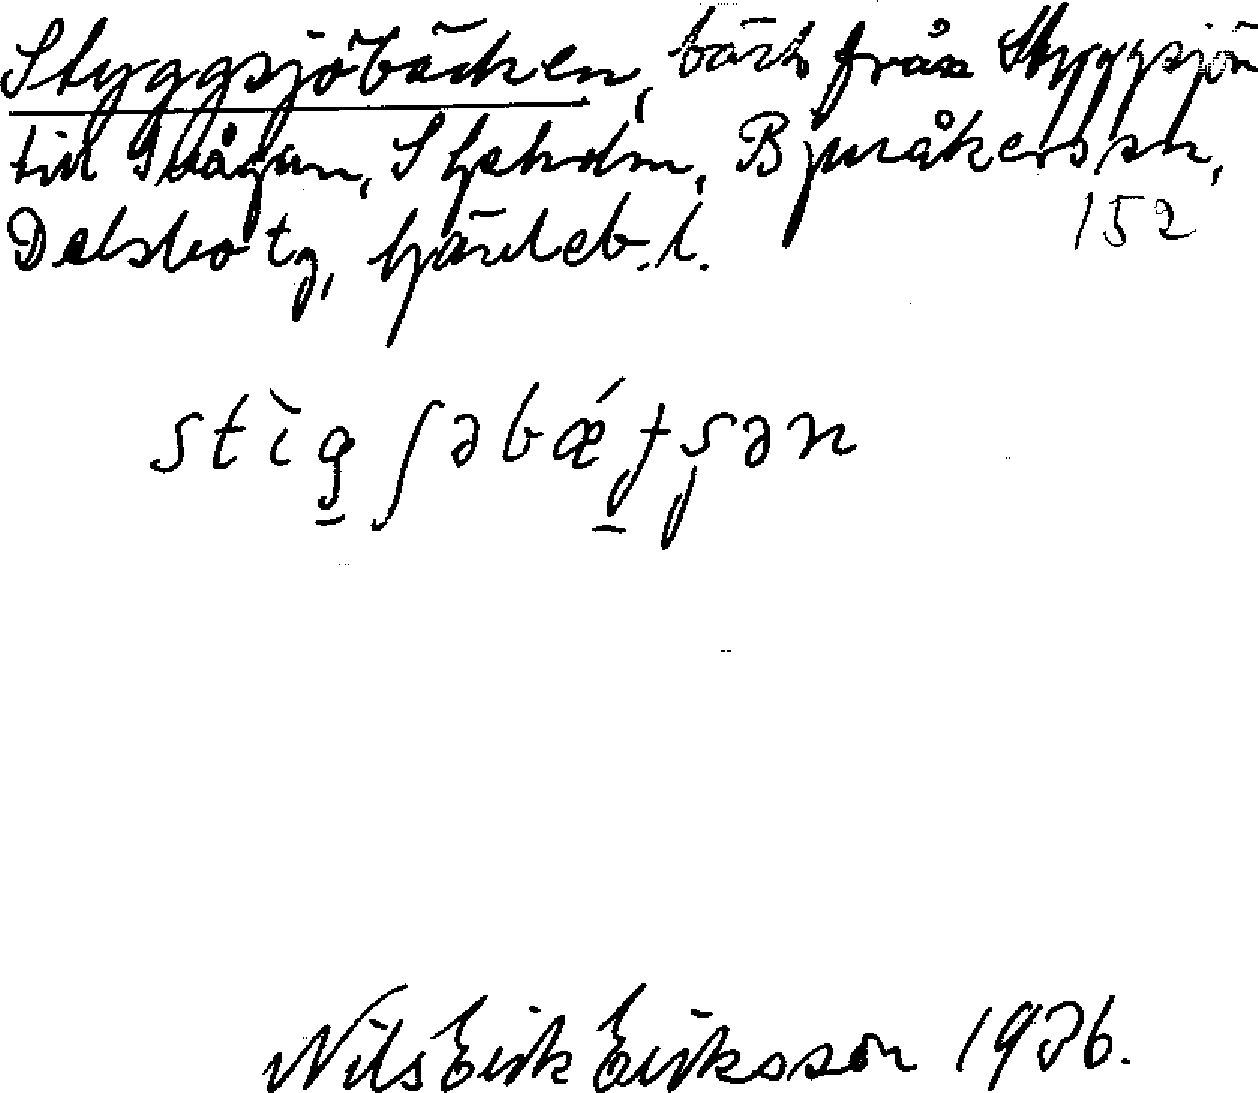 Styggsjöbäcken, bäck från Styggsjön
till Svågan, Stjehdm, Bjuråkers sn,
Delsbo tg, Gävleb. l.
152
stìg̠ʃəbǽɟ̠ʂən
Nils Erik Eriksson 1936.